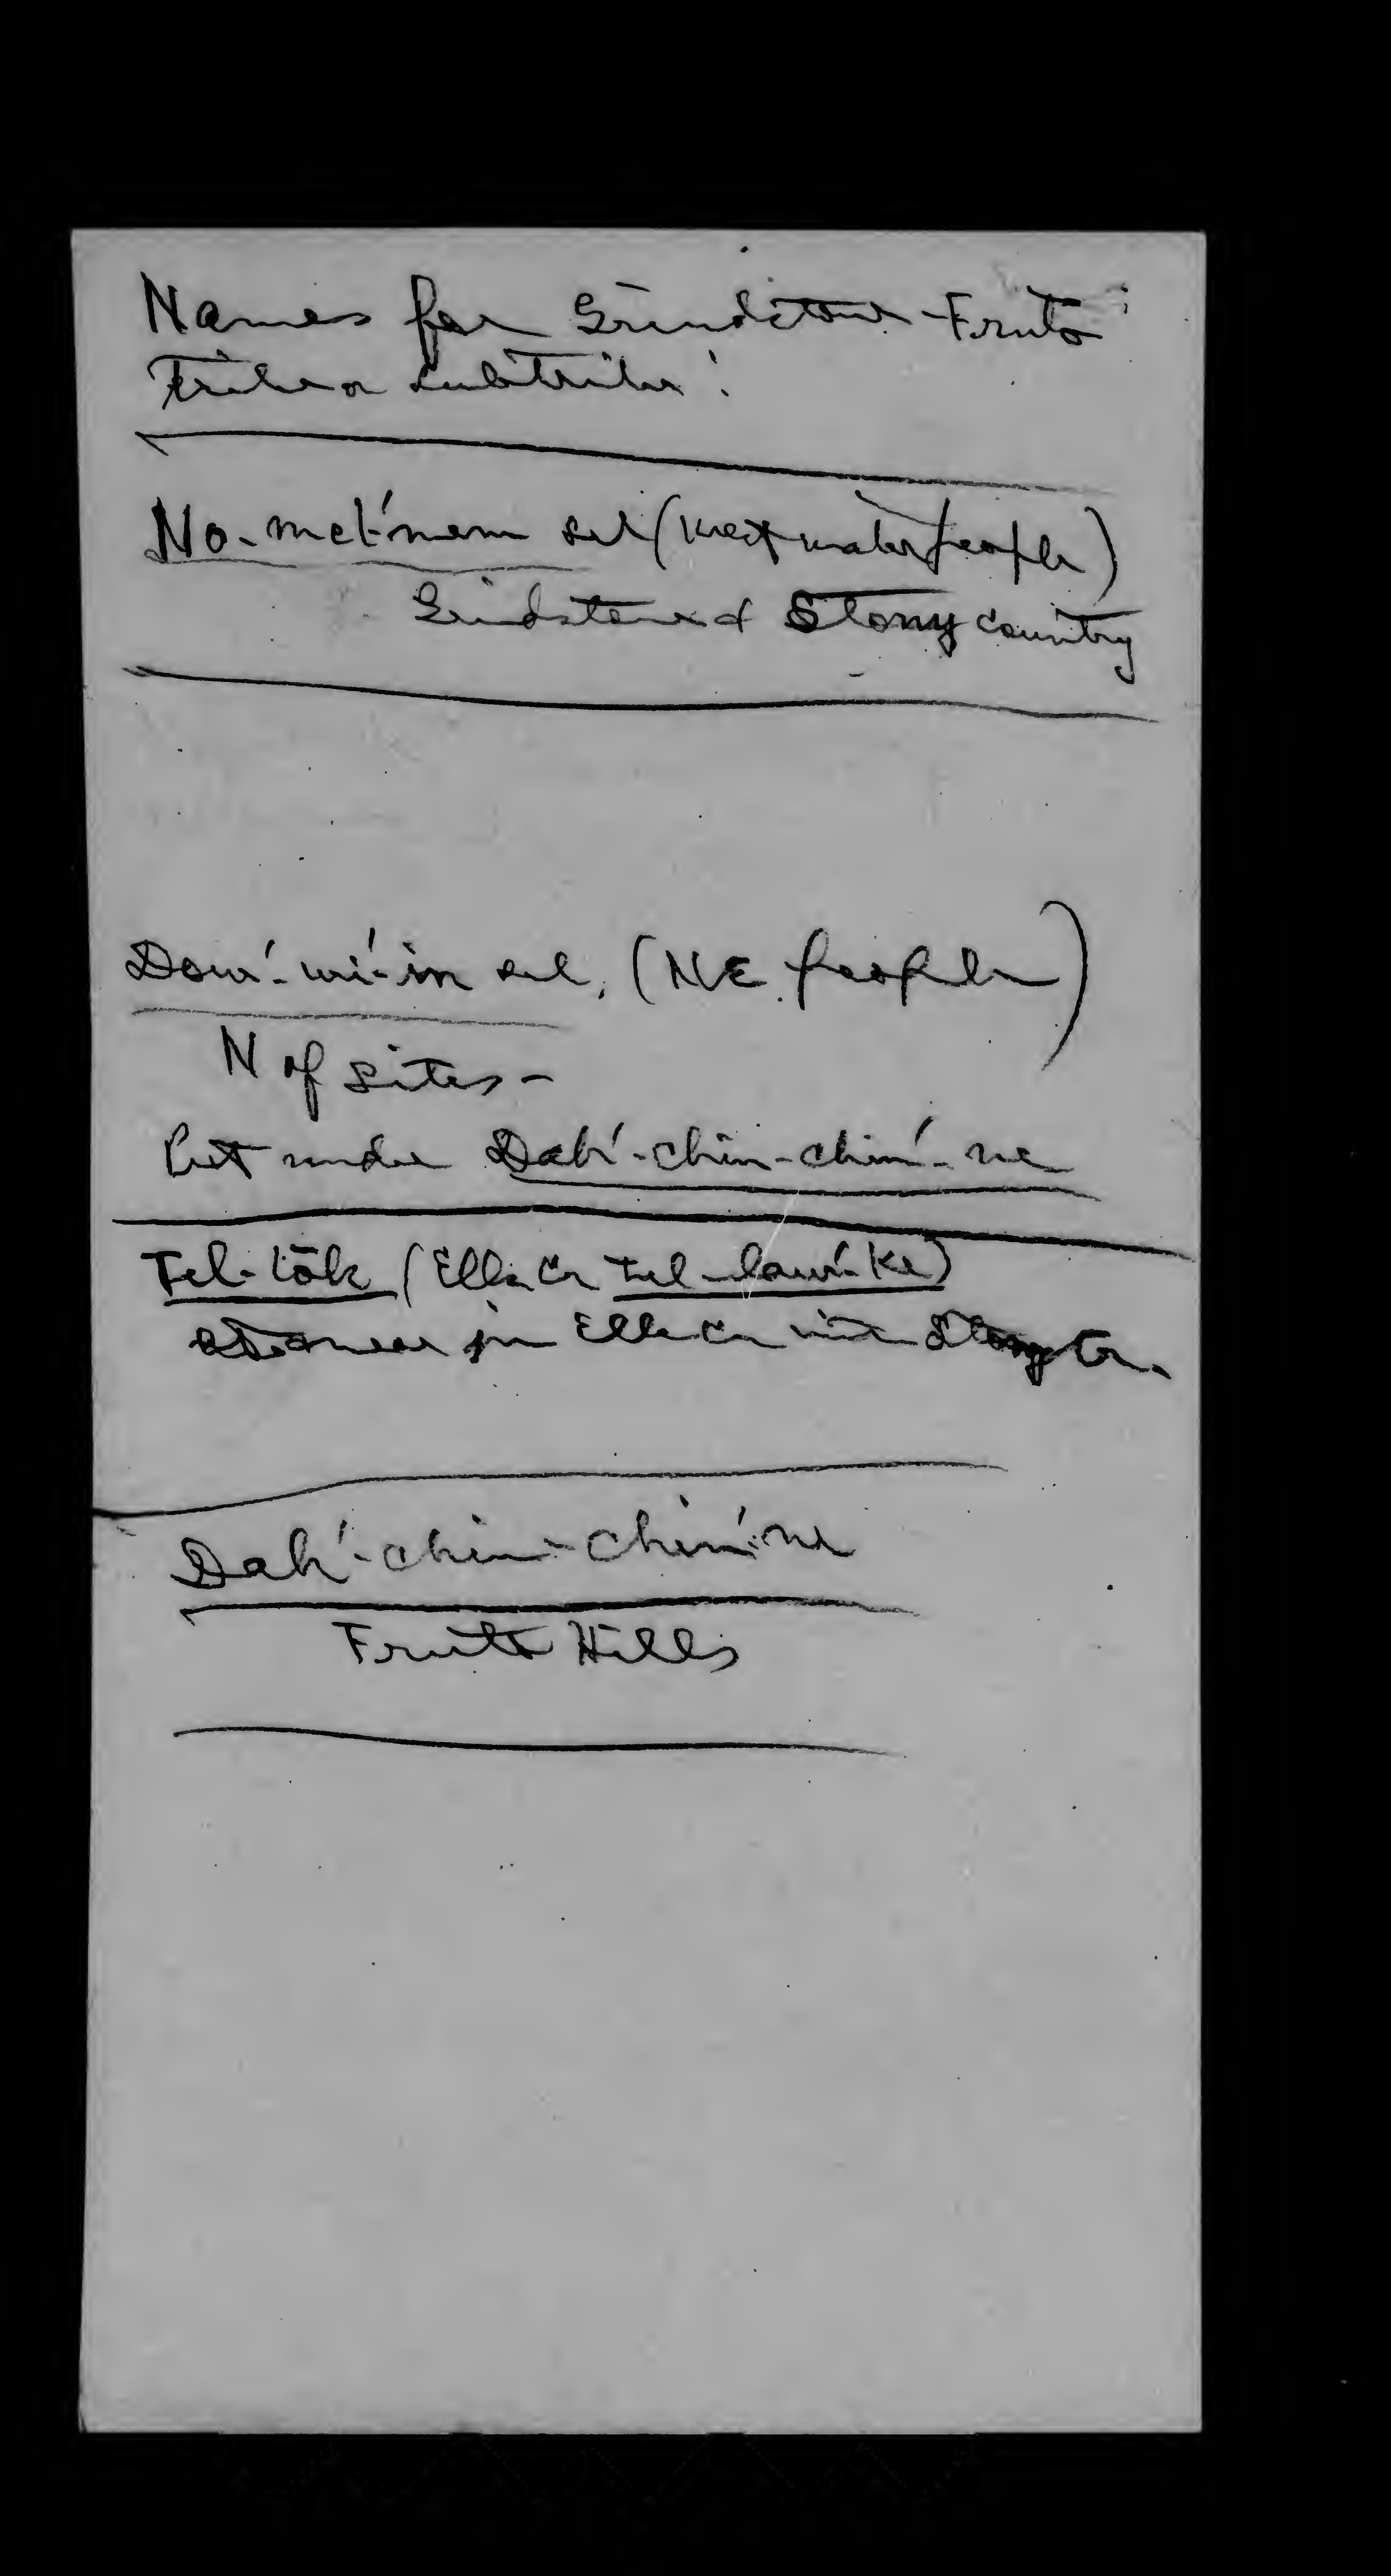 Names for Grindstone-Fruto
Tribe or subtribe:
No-mel'-nem sel (West water people)
Grindstone & Stony country
Dow'-wi'-in sel, (NE. people)
N of sites -
Put under Dah'-chin-chin'-ne
Tel-tōk (Elk Cr
at or near jn Elk Cr with Stony Cr.
Dah'-chin-chin'-ne
Fruto Hills